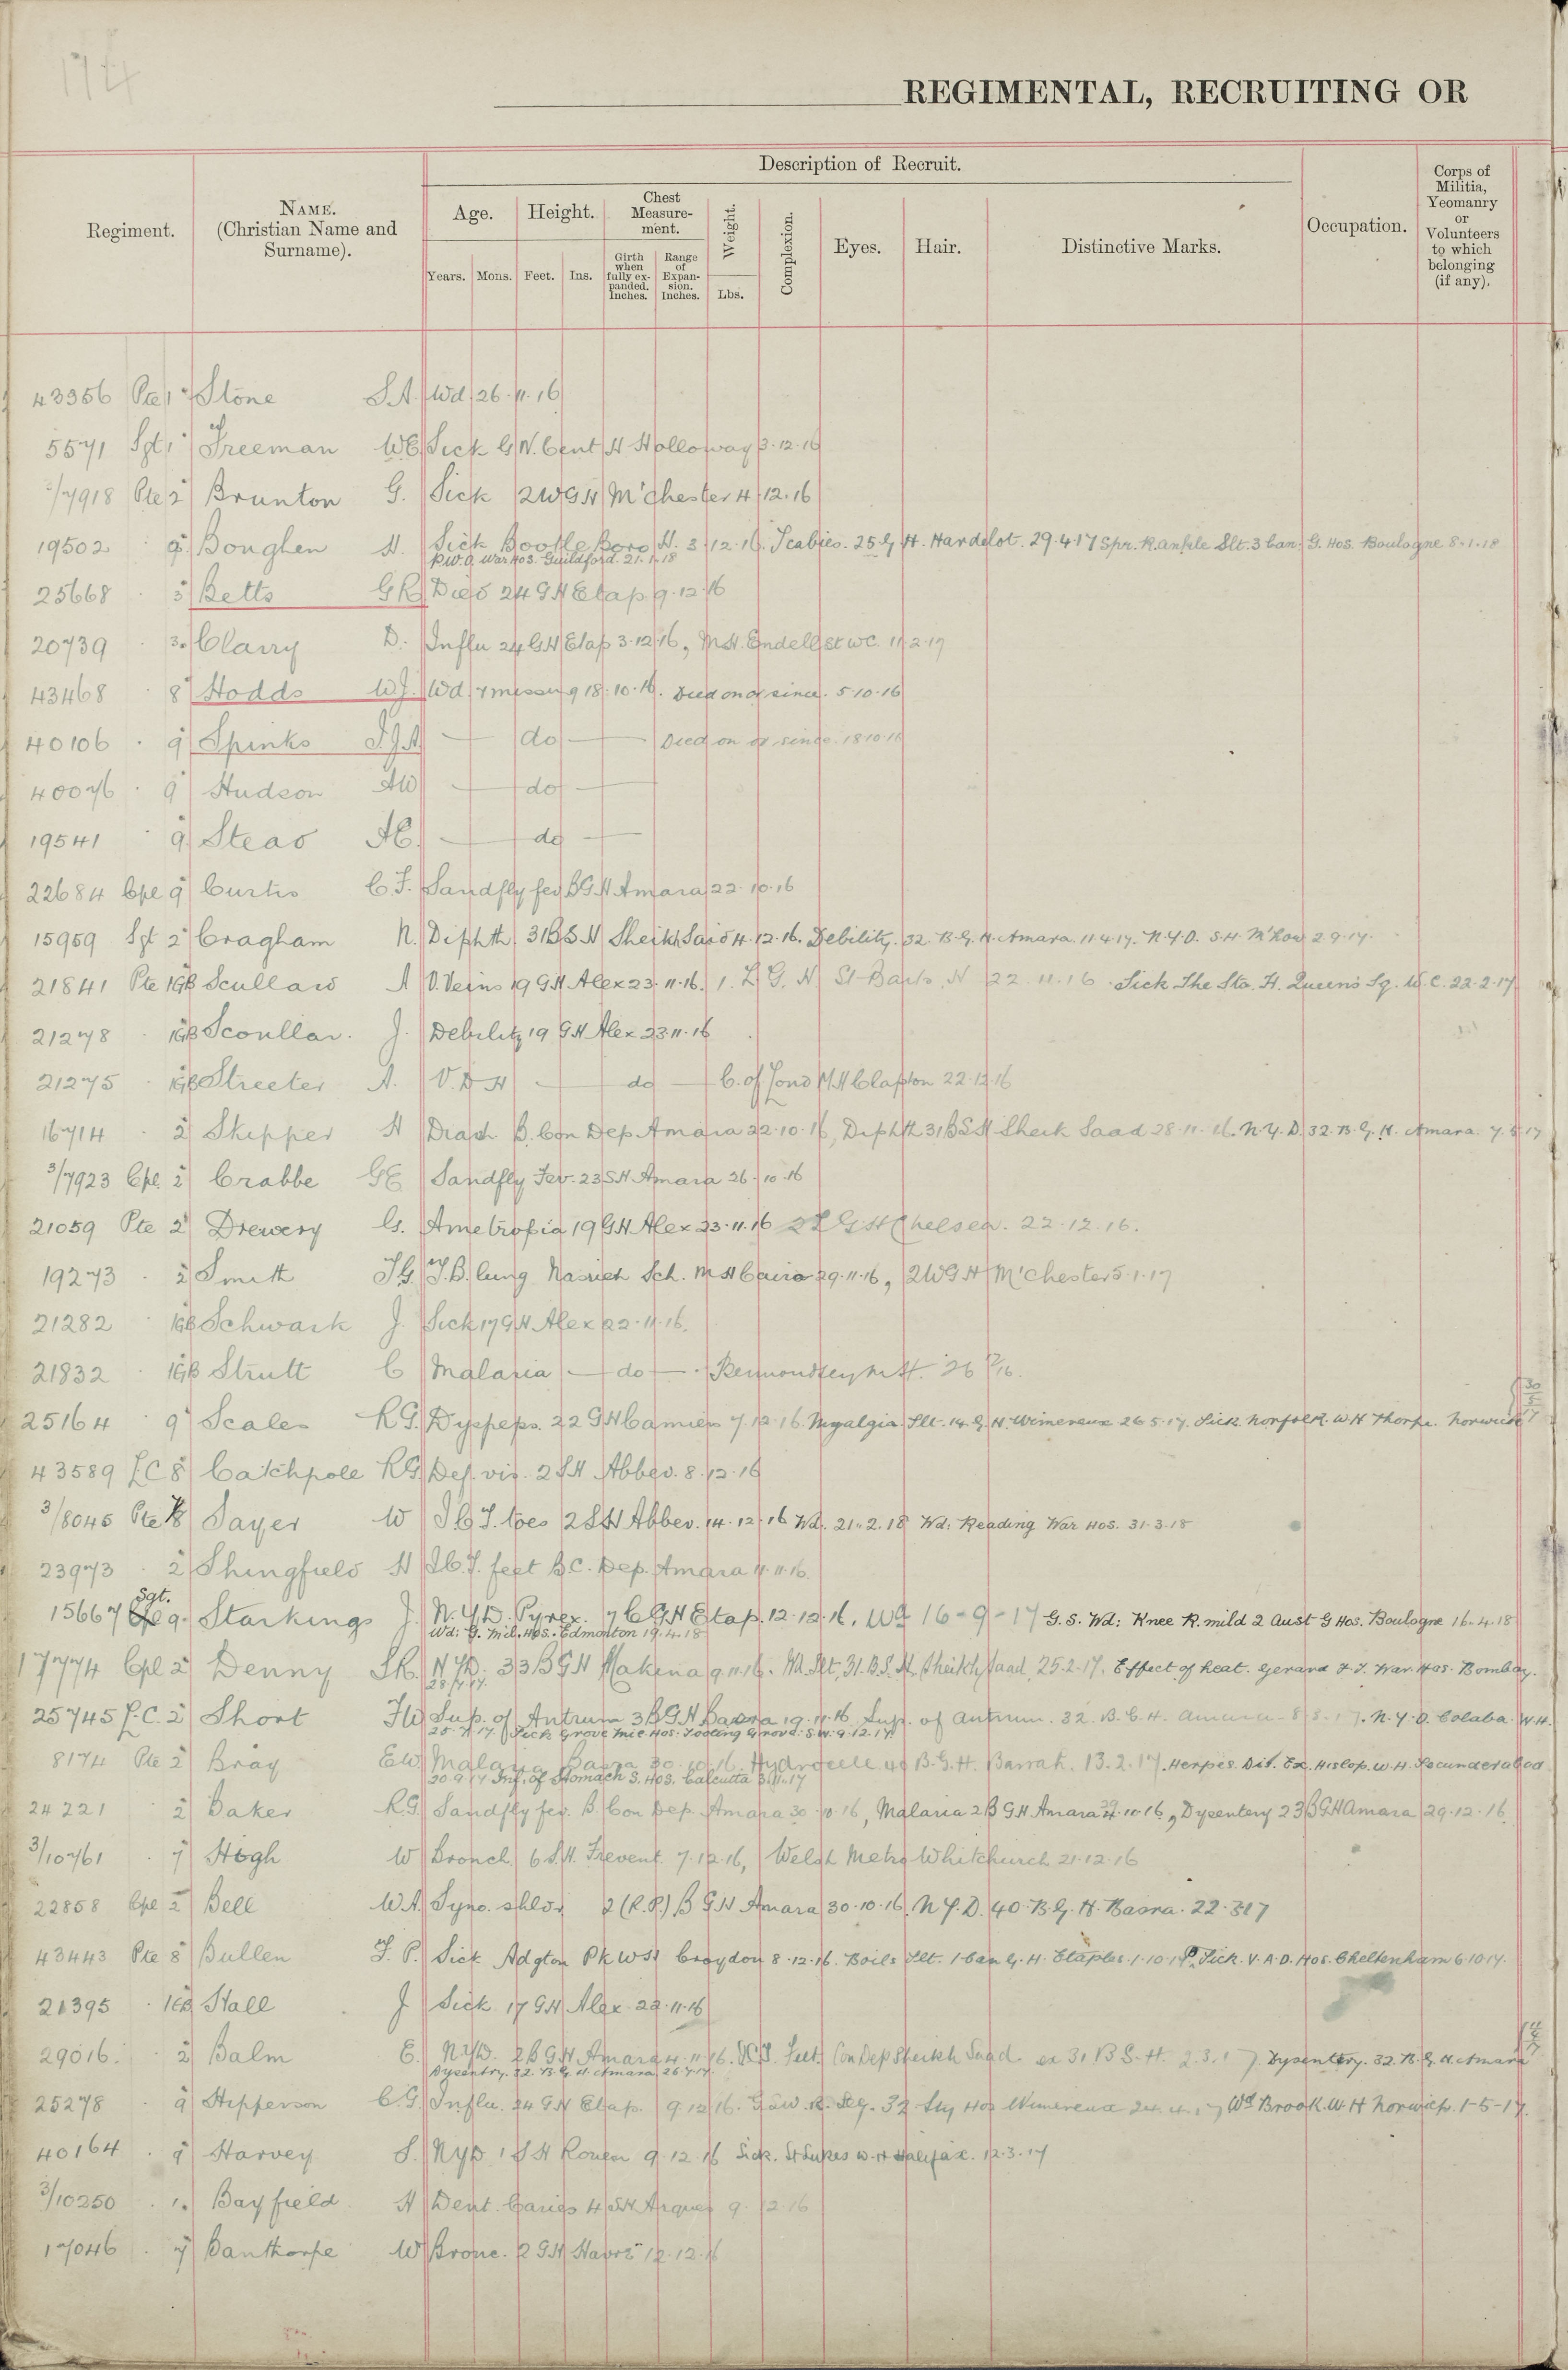 174
REGIMENTAL, RECRUITING OR
Description of Recruit.
Regiment.
NAME.
(Christian Name and
Surname).
Age.
Height.
Chest
Measure-
ment.
Weight.
Complexion.
Eyes.
Hair.
Distinctive Marks.
Occupation.
Corps of
Militia,
Yeomanry
or
Volunteers
to which
belonging
(if any).
Years.
Mons.
Feet.
Ins.
Girth
when
fully ex-
panded.
Inches.
Range
of
Expan-
sion.
Inches.
Lbs.
43356 Pte 1 Stone S.A. Wd 26.11.16
5571 Sgt 1 Freeman W.E. Sick G.N. Cent H Holloway 3.12.16
3/7918 Pte 2 Brunton G. Sick 2WGH M'chester 4.12.16
19502 9 Boughen H. Sick Bootle Boro H. 3.12.16. Scabies. 25 G.H. Hardelot. 29.4.17 Spr. R. ankle Slt. 3 Can. G. Hos. Boulogne 8.1.18
P.W.O. War Hos. Guildford. 21.1.18
25668 Betts G.R. Died 24 GH Etap. 9.12.16
20739 3 Clarry D. Influ 24 GH Etap 3.12.16, M.H. Endell St WC. 11.2.17
43468 8 Hodds W.J. Wd & missing 18.10.16. Died on or since. 5 10.16
40106 9 Spinks do Died on or since. 18 10 16
40076 9 Hudson AW do
19541 9 Stead do
22684 Cpl 9 Curtis C.F. Sandfly fev BGH Amara 22.10.16
15959 Sgt 2 Cragham N. Diphth. 31BSH Sheikh Said 4.12.16. Debility. 32. B.G.H. Amara. 11.4.17. N.Y.D. S.H. M'how 2.9.17.
21841 Pte 1GB Scullard A V. Veins 19 GH Alex 23.11.16. 1. L.G.H. St Barts. H 22.11.16 Sick The Sta. H. Queen's Sq. W.C. 22.2.17
21278 1GB Scoullar. J. Debility 19 GH Alex 23.11.16
21275 1GB Streeter A. V.D.H do C. of Lond M.H Clapton 22.12.16
16714 2 Skipper H Diarh B. Con Dep Amara 22.10.16, Diphth 31BSH Sheik Saad 28.11.16. N.Y.D. 32. B.G.H. Amara. 7.5.17
3/7923 Cpl. 2 Crabbe GE Sandfly Fev. 23SH Amara 26.10.16
21059 Pte 2 Drewery G. Ametropia 19 GH. Alex 23.11.16 2LGH Chelsea. 22.12.16.
19273 2 Smith T.B. lung Nasrieh Sch. M H Cairo 29.11.16, 2WGH M'chester 5.1.17
21282 1GB Schwark J. Sick 17 GH Alex 22.11.16.
21832 1GB Strutt C Malaria do Bermondsey M.H. 26
25164 9 Scales R.G. Dyspeps. 22 GH Camiers 7.12.16. Myalgia Slt. 14. G.H. Wimereux 26.5.17. Sick. Norfolk. W H Thorpe. Norwich
43589 LC 8 Catchpole R.G. Def. vis. 2SH Abbev. 8.12.16
3/8045 Pte 8 Sayer W I.C.T. toes 2SH Abbev. 14.12.16 Wd. 21.2.18 Wd: Reading War Hos. 31.3.18
23973 2 Shingfield H I.C.T. feet B.C. Dep. Amara 11.11.16.
15667 Sgt. 9. Starkings J. N.Y.D. Pyrex. 7 CGH Etap. 12.12.16. Wd 16-9-17 G.S. Wd: Knee R. mild 2 Aust G Hos. Boulogne 16.4.18
Wd: G. Mil. Hos. Edmonton 19.4.18
17774 Cpl 2 Denny N.Y.D. 33BGH Makina 9.11.16. Wd. Slt. 31. B.S.H. Sheikh Saad. 25.2.17. Effect of heat. Gerard F.T. War. Hos. Bombay.
28.7.17.
25745 L.C. 2 Short Sup. of Antrum 3BGH Basra 19.11.16 Sup. of Antrum. 32. B.G.H. Amara 8.5.17. N.Y.D. Colaba. W.H.
25.7.17 Sick Grove Mil Hos. Tooting Grove. S.W. 9.12.17
8174 Pte 2 Bray E.W. Malaria Basra 30.10.16. Hydrocele 40 B.G.H. Basrah. 13.2.17. Herpes. Dis. Ex. Hislop. W.H. Secunderabad
30.9.17 Inf. of Stomach S. Hos. Calcutta 31.11.17
24221 2 Baker R.G. Sandfly fev. B. Con Dep. Amara 30.10.16, Malaria 2BGH Amara 11.16, Dysentery 23BGH Amara 29.12.16
3/10761 7 High W Bronch 6 S.H. Frevent 7.12.16, Welsh Metro Whitchurch 21.12.16
22858 Cpl 2 Bell W.A. Syno. shldr. 2 (R.P.) BGH Amara 30.10.16. N.Y.D. 40. B.G.H. Basra. 22.3.17
43443 Pte 8 Bullen F.P. Sick Adgton Pk WH Croydon 8.12.16. Boils Slt. 1 Can G.H. Etaples. 1.10.17. Sick. V.A.D. Hos. Cheltenham 6.10.17.
21395 1GB Hall J Sick 17 GH Alex. 22.11.16
29016. 2 Balm E. N.Y.D. 2BGH Amara 4.11.16. I.C.T. Feet. Con Dep Sheikh Saad ex 31 B.S.H. 2.3.17 Dysentery. 32. B.G.H. Amara
Dysentry. 32. B.G.H. Amara 26.7.17.
25278 9 Hipperson C.G. Influ. 24 GH Etap. 9.12.16. G.S.W. R. Leg. 32 Sty Hos Wimereux Wd Brook. W.H Norwich. 1-5-17.
40164 9 Harvey S. NYD 1 SH Rouen 9.12.16 Sick. St Lukes W.H Halifax. 12.3.17
3/10250 1. Bayfield H Dent. Caries 4 SH Arques 9.12.16
17046 7 Banthorpe W Bronc. 2 GH Havre 12.12.16